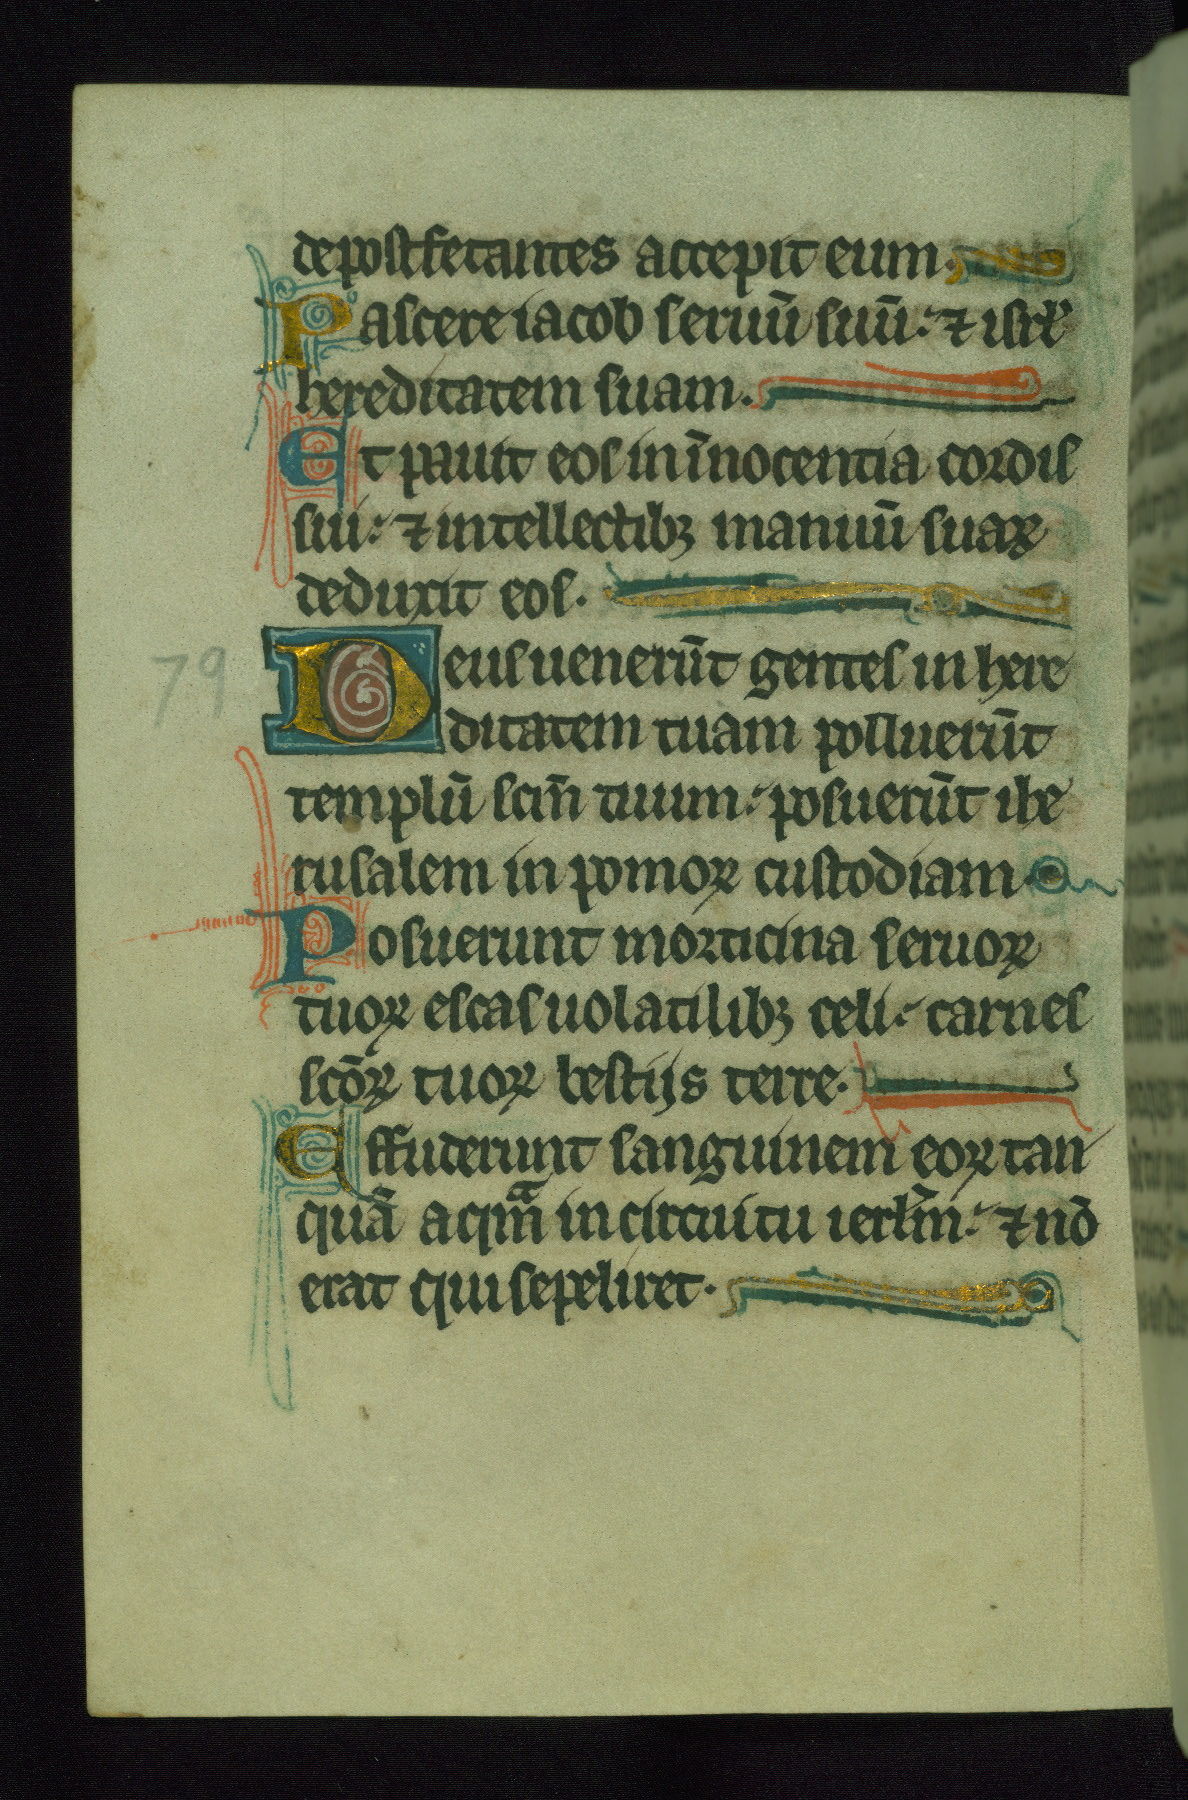 de postfetantes accepit eum.
Pascere iacob seruū suū: ⁊ isrł
hereditatem suam.
Et pauit eos in īnocentia cordis
sui: ⁊ in intellectibꝫ manuū suaꝝ
deduxit eos.
79
Deus uenerūt gentes in here
ditatem tuam polluerūt
templū scm̄ tuum: posuerūt ihe
rusalem in pomoꝝ custodiam
Posuerunt morticina seruoꝝ
tuoꝝ escas uolatilibꝫ celi: carnes
scōꝝ tuoꝝ bestijs terre.
Effuderunt sanguinem eoꝝ tan
quā aqm̄ in circuitu ierłm̄: ⁊ nō
erat qui sepeliret.